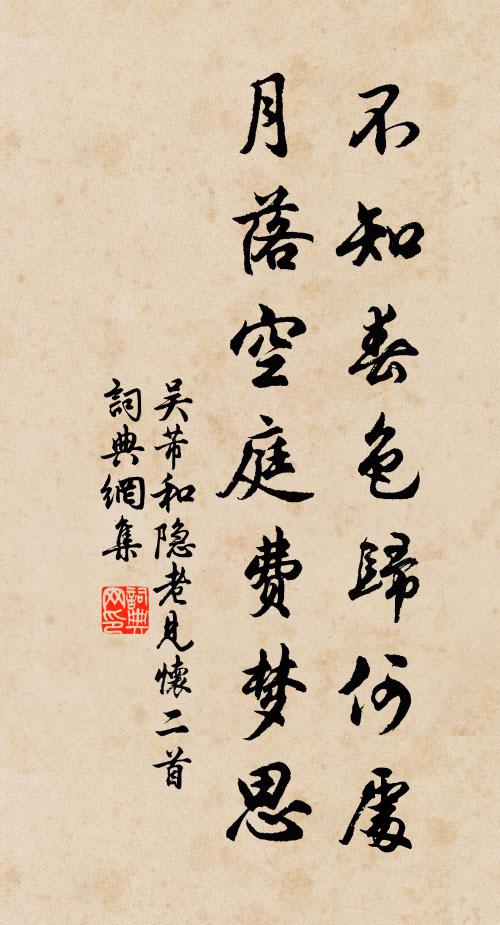 不知春色歸何處
月落空庭費梦思
吴芾和隐老見懷二首
詞典網集
詞典
网印